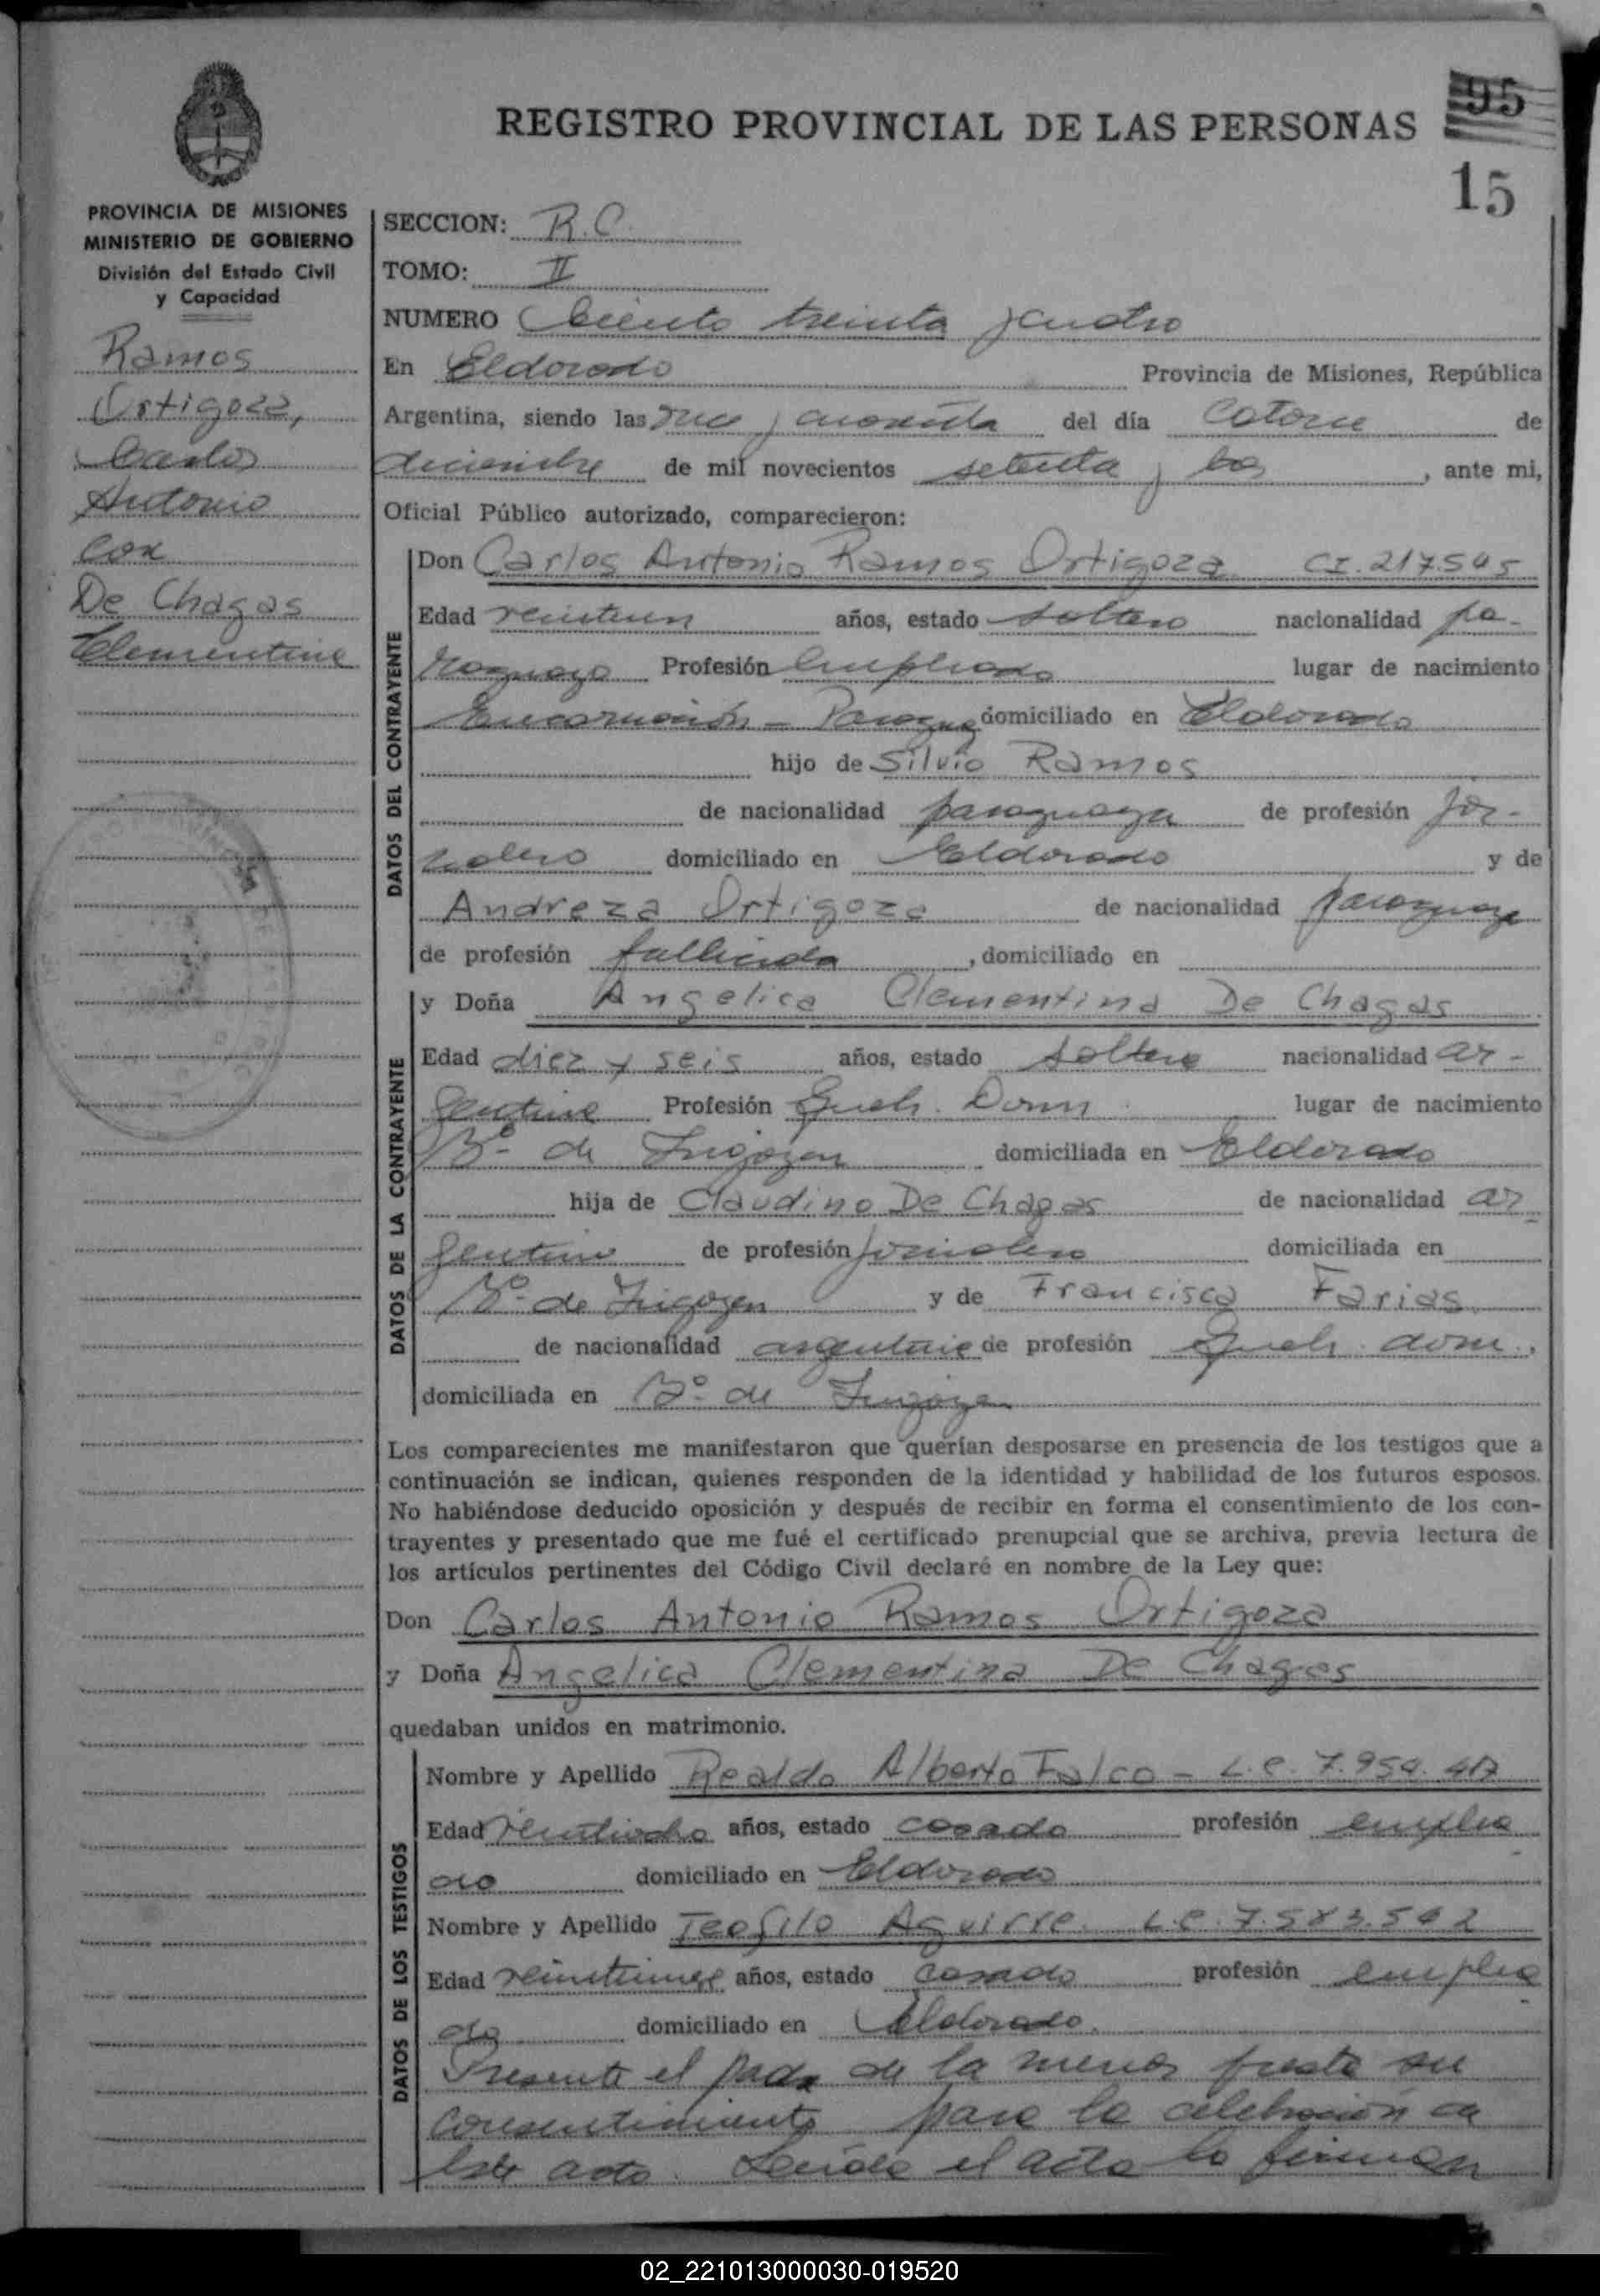 REGISTRO PROVINCIAL DE LAS PERSONAS
95
15
PROVINCIA DE MISIONES
MINISTERIO DE GOBIERNO
División del Estado Civil
y Capacidad
Ramos
Ortigoza,
Carlos
Antonio
con
De Chagas
Clementina
SECCION: R.C.
TOMO: II
NUMERO Ciento treinta y cuatro
En Eldorado Provincia de Misiones, República
Argentina, siendo las y cuarenta del día Catorce de
diciembre de mil novecientos setenta y dos, ante mi,
Oficial Público autorizado, comparecieron:
DATOS DEL CONTRAYENTE
Don Carlos Antonio Ramos Ortigoza CI. 217.545
Edad veintiun años, estado soltero nacionalidad pa-
raguaya Profesión Empleado lugar de nacimiento
Encarnación - Paraguay domiciliado en Eldorado
hijo de Silvio Ramos
de nacionalidad paraguaya de profesión jor-
nalero domiciliado en Eldorado y de
Andreza Ortigoza de nacionalidad paraguaya
de profesión fallecida, domiciliado en
DATOS DE LA CONTRAYENTE
y Doña Angelica Clementina De Chagas
Edad diez y seis años, estado soltera nacionalidad ar-
gentina Profesión Queh. Dom. lugar de nacimiento
Bº de Irigoyen domiciliada en Eldorado
hija de Claudino De Chagas de nacionalidad ar-
gentino de profesión jornalero domiciliada en
Bº de Irigoyen y de Francisca Farias
de nacionalidad argentina de profesión Queh. dom.,
domiciliada en Bº de Irigoyen
Los comparecientes me manifestaron que querían desposarse en presencia de los testigos que a
continuación se indican, quienes responden de la identidad y habilidad de los futuros esposos.
No habiéndose deducido oposición y después de recibir en forma el consentimiento de los con-
trayentes y presentado que me fué el certificado prenupcial que se archiva, previa lectura de
los artículos pertinentes del Código Civil declaré en nombre de la Ley que:
Don Carlos Antonio Ramos Ortigoza
y Doña Angelica Clementina De Chagas
quedaban unidos en matrimonio.
DATOS DE LOS TESTIGOS
Nombre y Apellido Realdo Alberto Falco - L.E.
Edad veintiocho años, estado casado profesión emplea
do domiciliado en Eldorado
Nombre y Apellido Teofilo Aguirre. L.E. 7.583.502
Edad años, estado casado profesión emplea
do domiciliado en Eldorado.
Presente el padre de la menor presta su
consentimiento para la celebración de
este acto. Leída el acta la firman
02_221013000030-019520